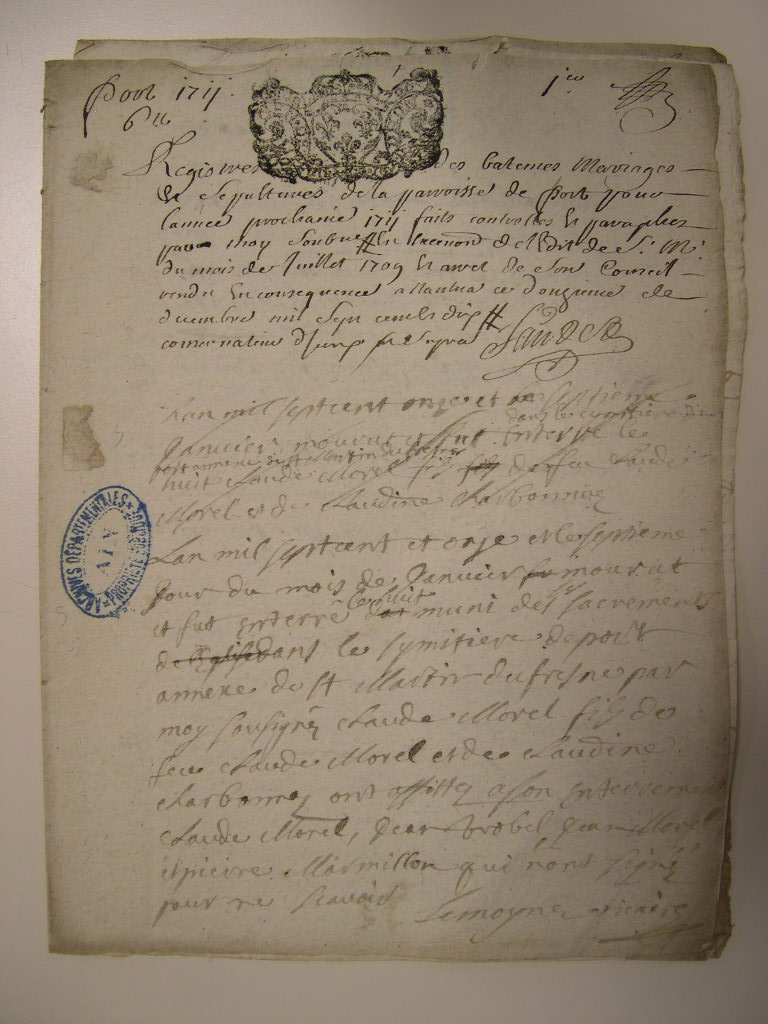 Port 1711
1er
6 ll
Registres des batemes Mariages
Et Sepultures de la parroisse de Port pour
lannee prochaine 1711 faits et paraphes
par moy En de lEdit de S. M.
du mois de Juillet 1709 Et arret de son Conseil
rendu En consequence a Nantua ce douzieme de
decembre mil sept cents dix
Lan mil sept cent onze et septieme
dans le
Janvier mourut et fut enterre le
port annexe de st Martin du fresne
huit claude Morel fils de feu claude
Morel et de claudine charbonney
Lan mil sept cent et onze et le septieme
jour du mois de Janvier mourut
et fut enterré le huit muni des sacrements
de l'Eglise dans le symitiere de port
annexe de st Martin du fresne par
moy sousigné claude Morel fils de
feu claude Morel et de claudine
charbonney ont assistez a son enterrement
claude Morel, jean jean Morel
et pierre Marmillon qui nont signé
pour ne scavoir Lemoyne vicaire
ARCHIVES DÉPARTEMENTALES
AIN